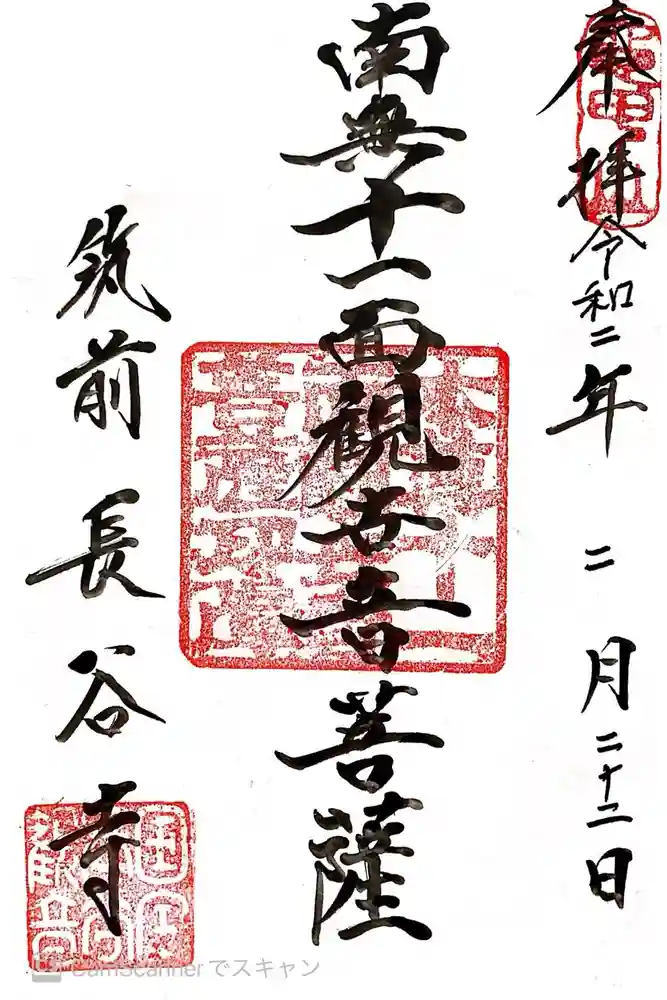 奉拝
令和二年 二月二十二日
南無十一面観世音菩薩
筑前 長谷寺
CamScannerでスキャン